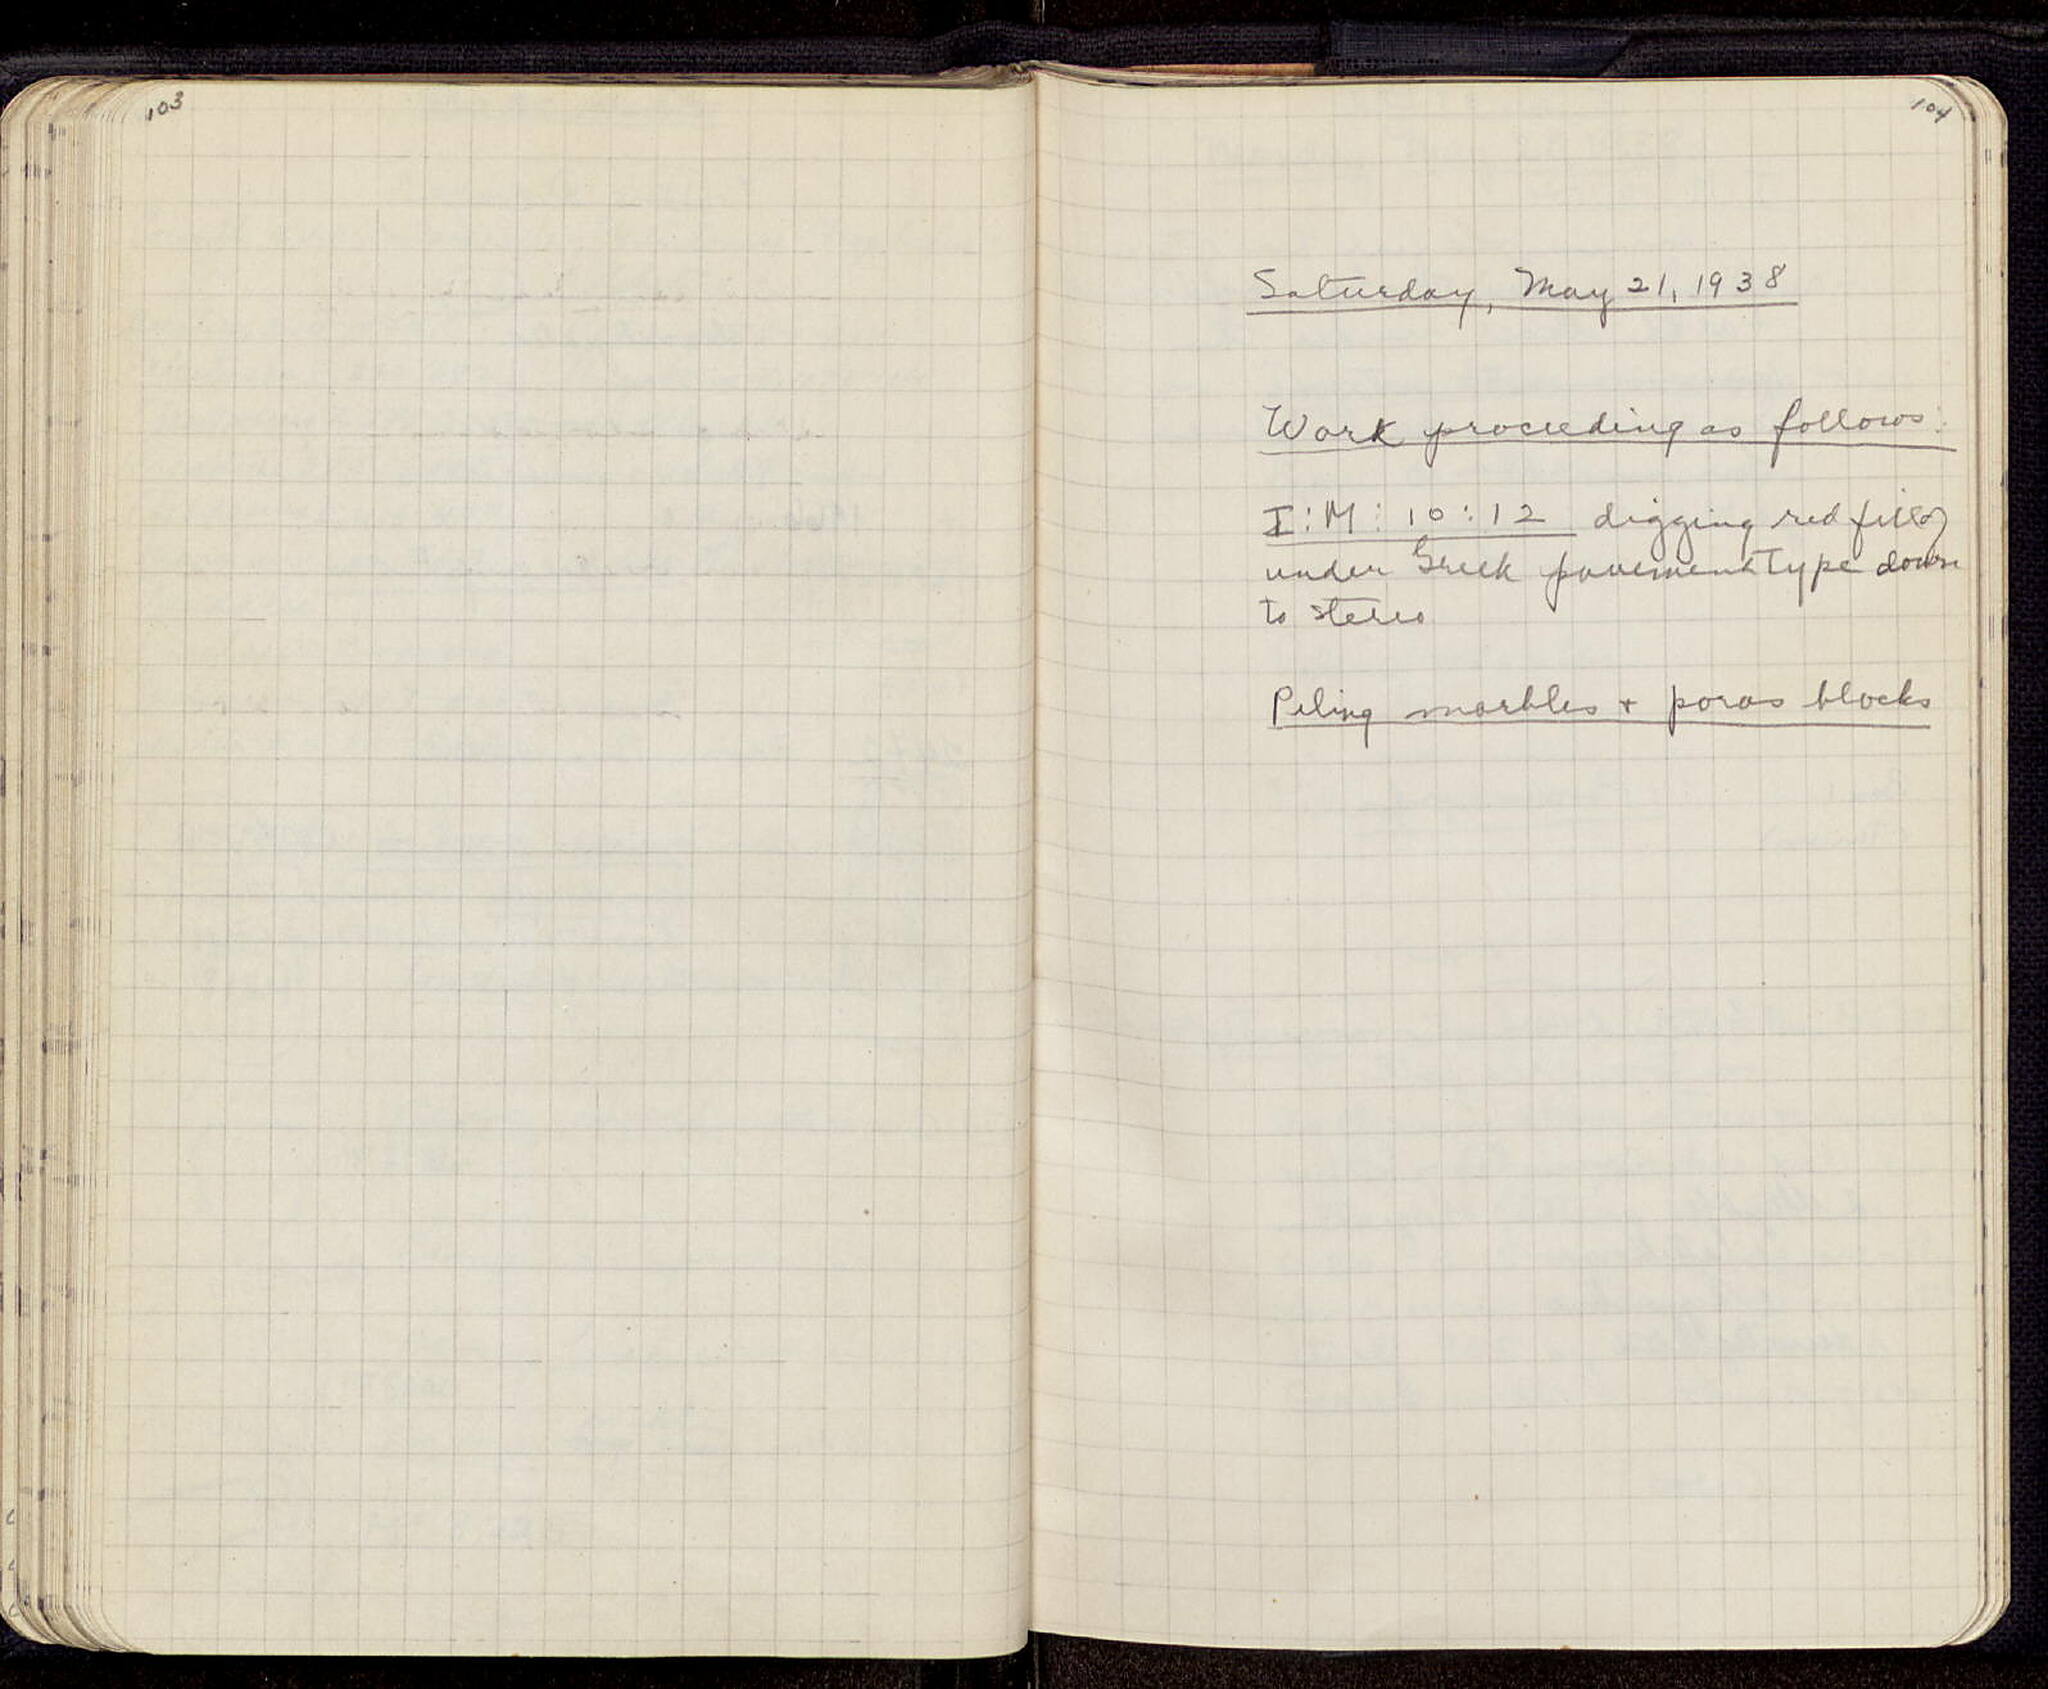 103
104
Saturday, May 21, 1938
Work proceeding as follows:
I:M:10:12 digging red fill of
under Greek pavement type down
to stereo
Piling marbles + poros blocks